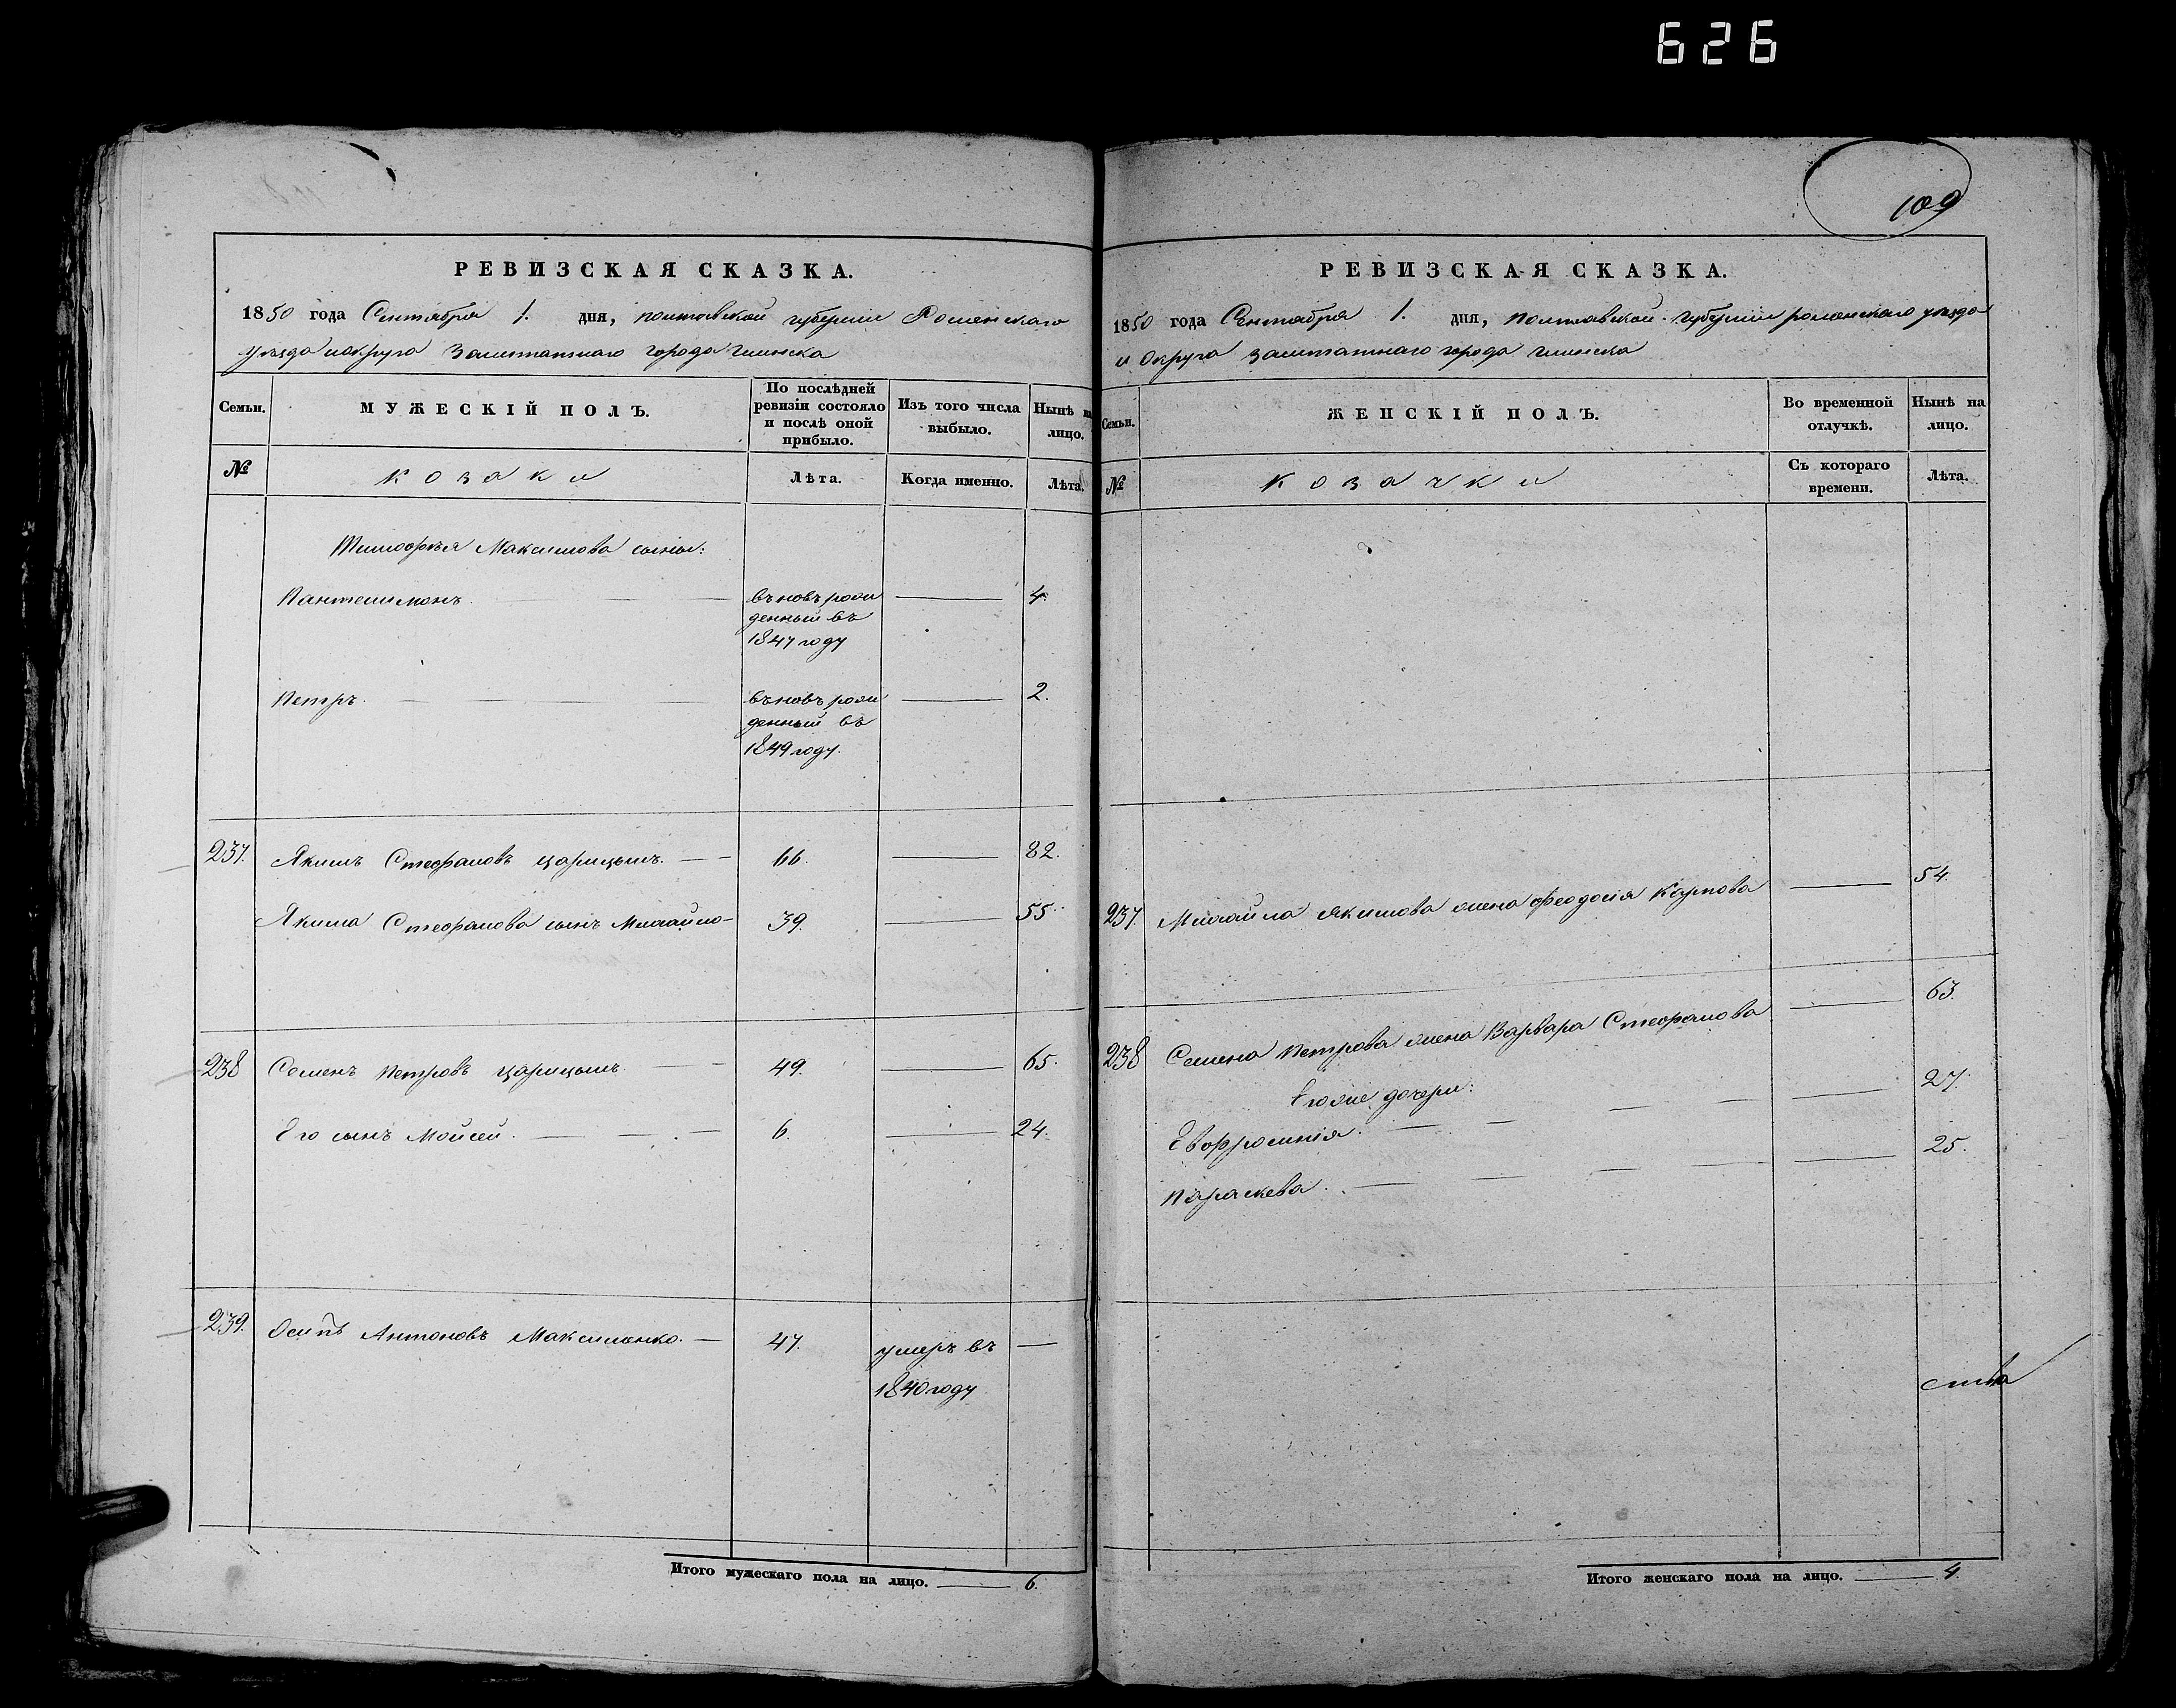 626
РЕВИЗСКАЯ СКАЗКА.
1850 года Сентября 1. дня, полтавской губернии Роменскаго
уезда и округа Заштатнаго города Глинска
Семьи.
МУЖЕСКІЙ ПОЛЪ.
По послѣдней ревизіи состояло и послѣ оной прибыло.
Изъ того числа выбыло.
Нынѣ на лицо.
№
козаки
Лѣта.
Когда именно.
Лѣта.
Тимофѣя Максимова сыны:
Пантелимонъ. въновь рож 4.
денный въ
1847 году
Петръ. въновь рож 2.
денный въ
1849 году.
237. Якимъ Стефановъ Царицынъ. 66. 82.
Якима Стефанова сынъ Михайло 39. 55.
238 Семенъ Петровъ Царицынъ 49. 65.
Его сынъ Мойсей. 6. 24.
239. Осипъ Антоновъ Максименко. 47. умеръ въ
1840 году
Итого мужескаго пола на лицо. 6.
109
РЕВИЗСКАЯ СКАЗКА.
1850 года Сентября 1. дня, полтавской губернии роменскаго уезда
и Округа заштатнаго города Глинска
Семьи.
ЖЕНСКІЙ ПОЛЪ.
Во временной отлучкѣ.
Нынѣ на лицо.
№
козачки
Съ котораго времени.
Лѣта.
237. Михайла Якимова жена Феодосія Карпова 54.
238 Семена Петрова жена Варвара Стефанова 63.
Его же дочери:
Евфросинія. 27.
Параскева. 25.
Итого женскаго пола на лицо. 4.